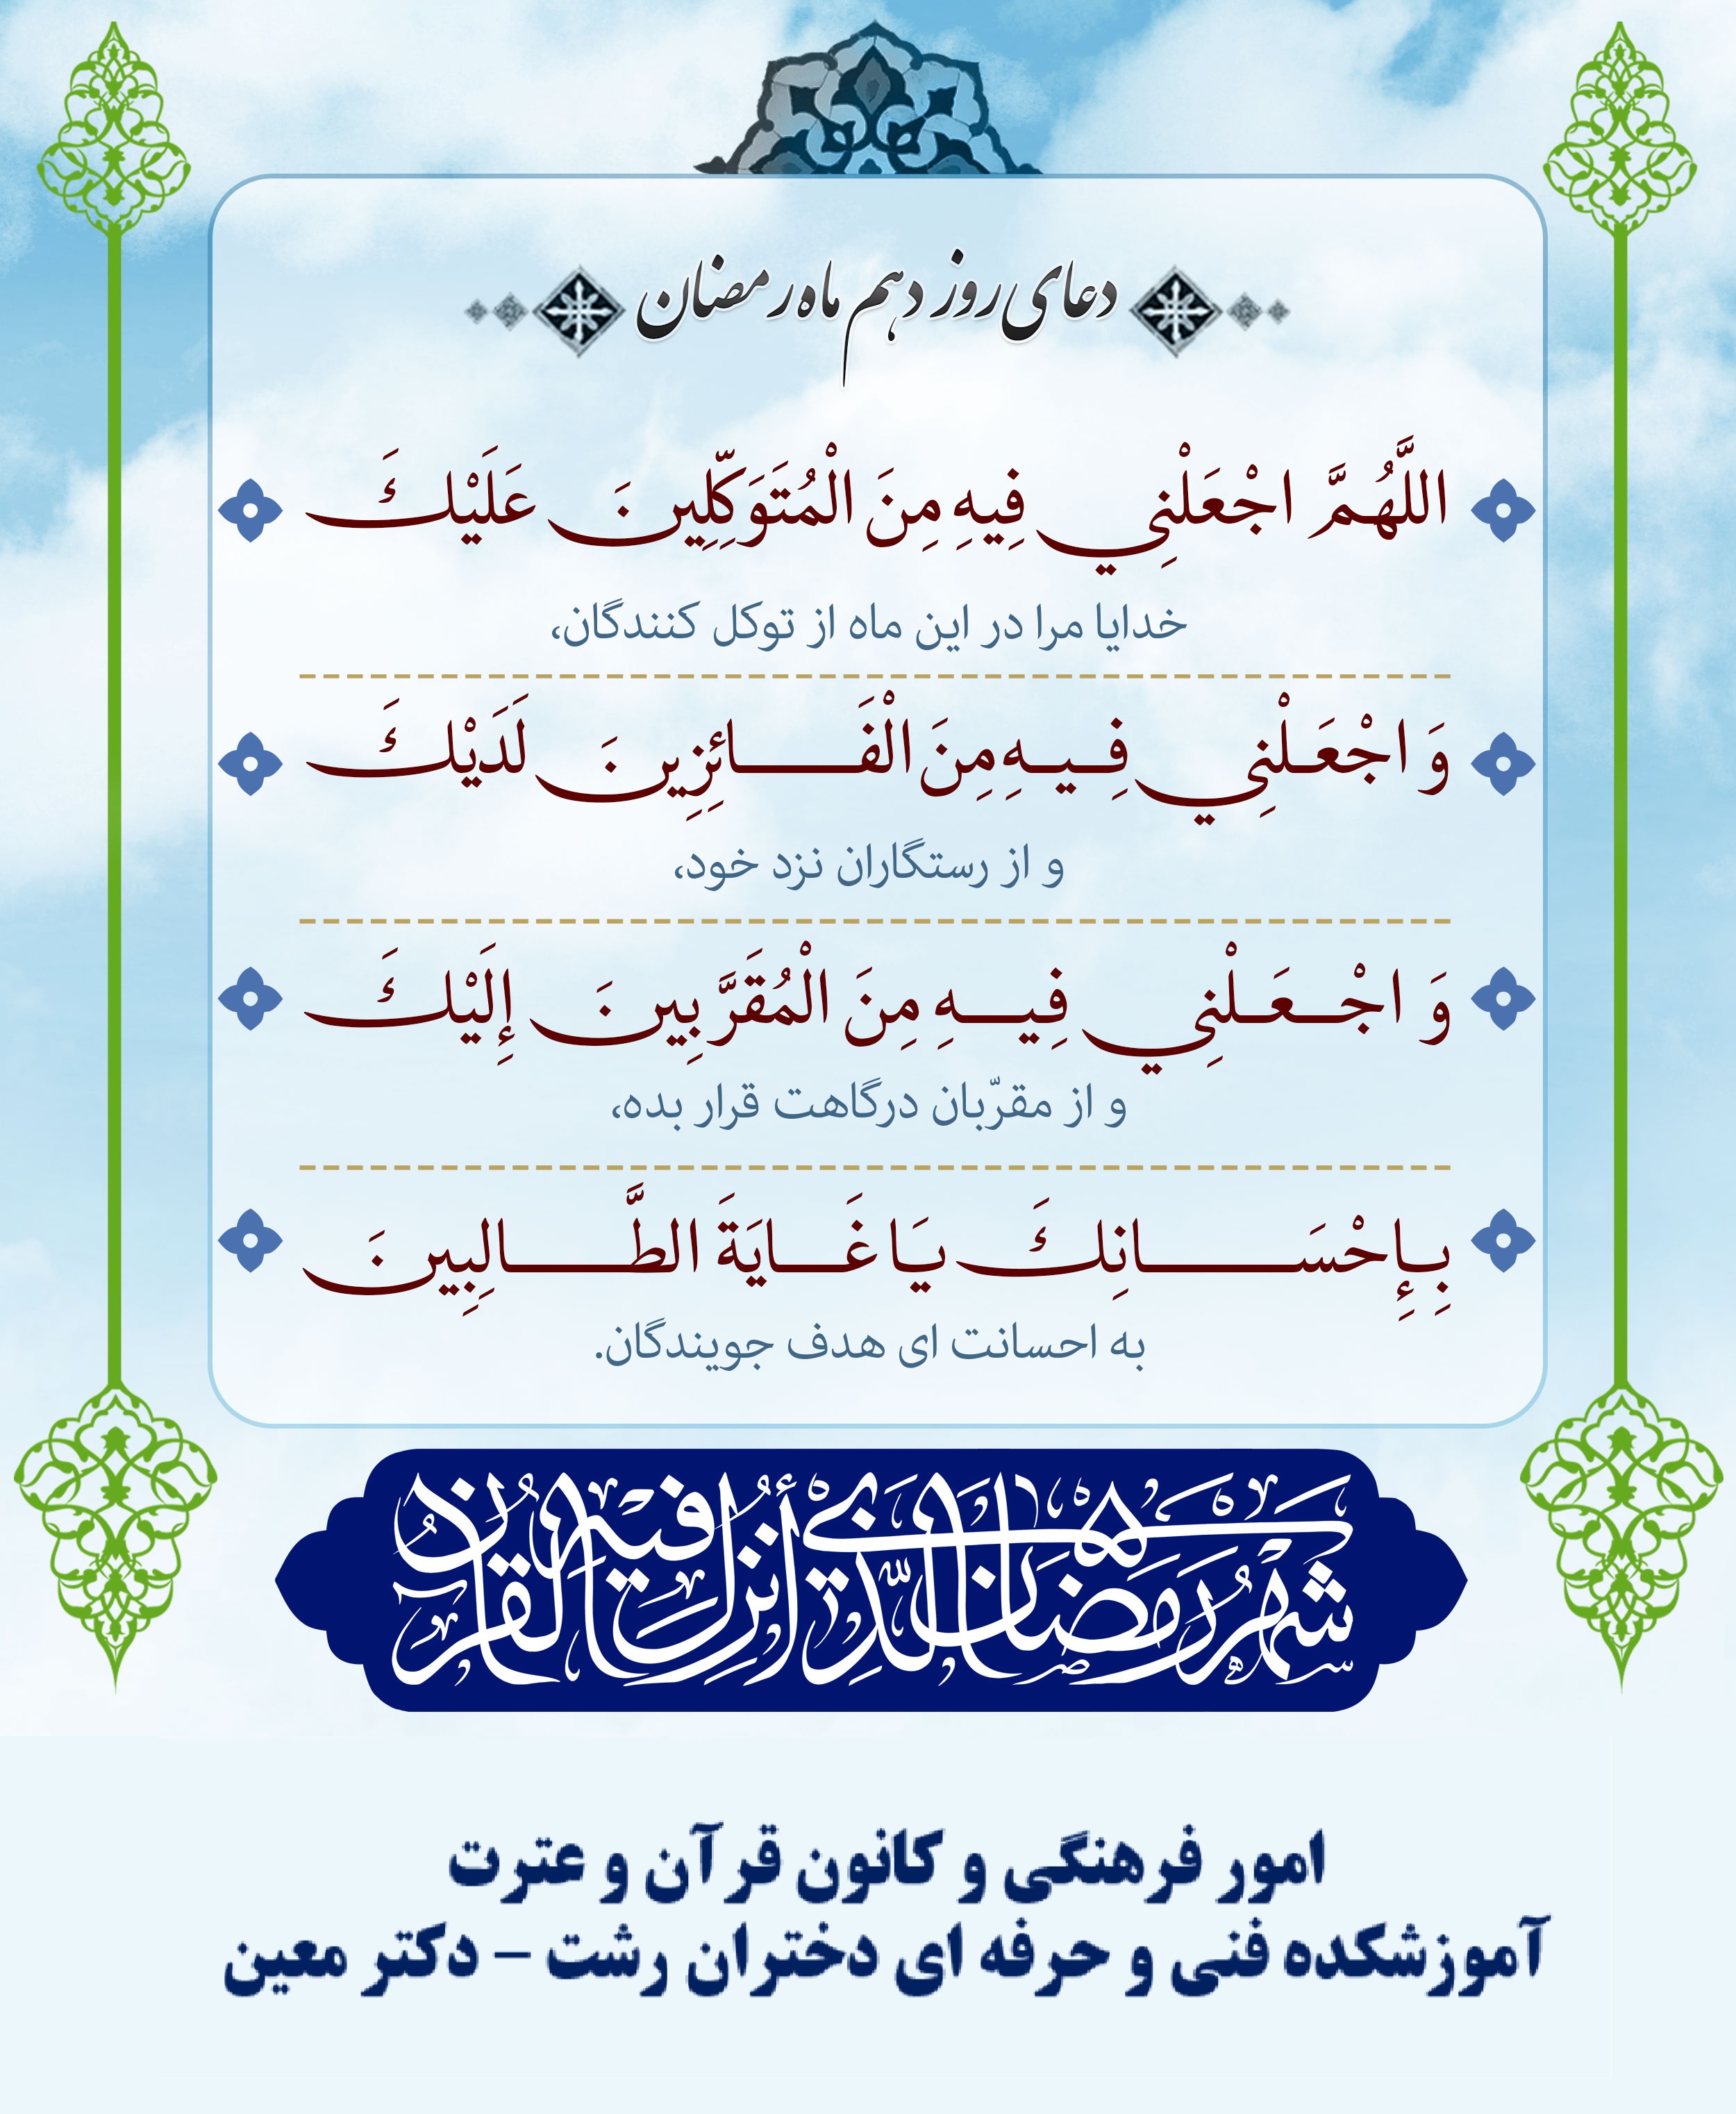 دعای روز دهم ماه رمضان
اللَّهُمَّ اجْعَلْنِي فِيهِ مِنَ الْمُتَوَكِّلِينَ عَلَيْكَ
خدایا مرا در این ماه از توکل کنندگان،
وَ اجْعَلْنِي فِيهِ مِنَ الْفَائِزِينَ لَدَيْكَ
و از رستگاران نزد خود،
وَ اجْعَلْنِي فِيهِ مِنَ الْمُقَرَّبِينَ إِلَيْكَ
و از مقرّبان درگاهت قرار بده،
بِإِحْسَانِكَ يَا غَايَةَ الطَّالِبِينَ
به احسانت ای هدف جویندگان.
شهر رمضان الّذي أنزل فيه القرآن
امور فرهنگی و کانون قرآن و عترت
آموزشکده فنی و حرفه ای دختران رشت – دکتر معین